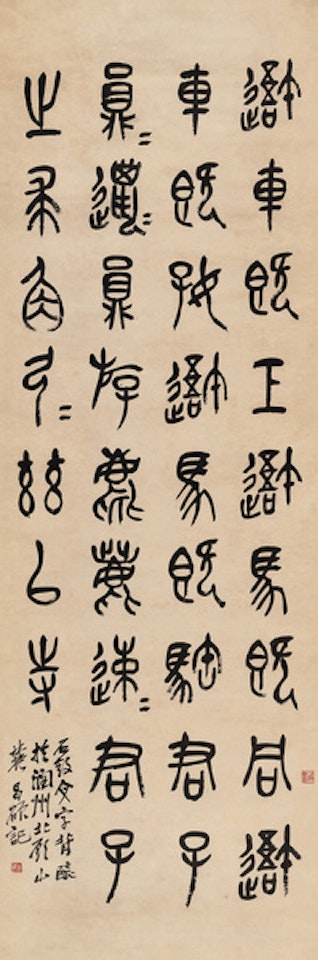 䢒車既工䢒馬既同䢒
車既好䢒馬既君子
員=邋=員斿麀鹿速=君子
之求角弓=兹以寺
石鼓文字背臨
於潤州北顧山
麓昌碩記